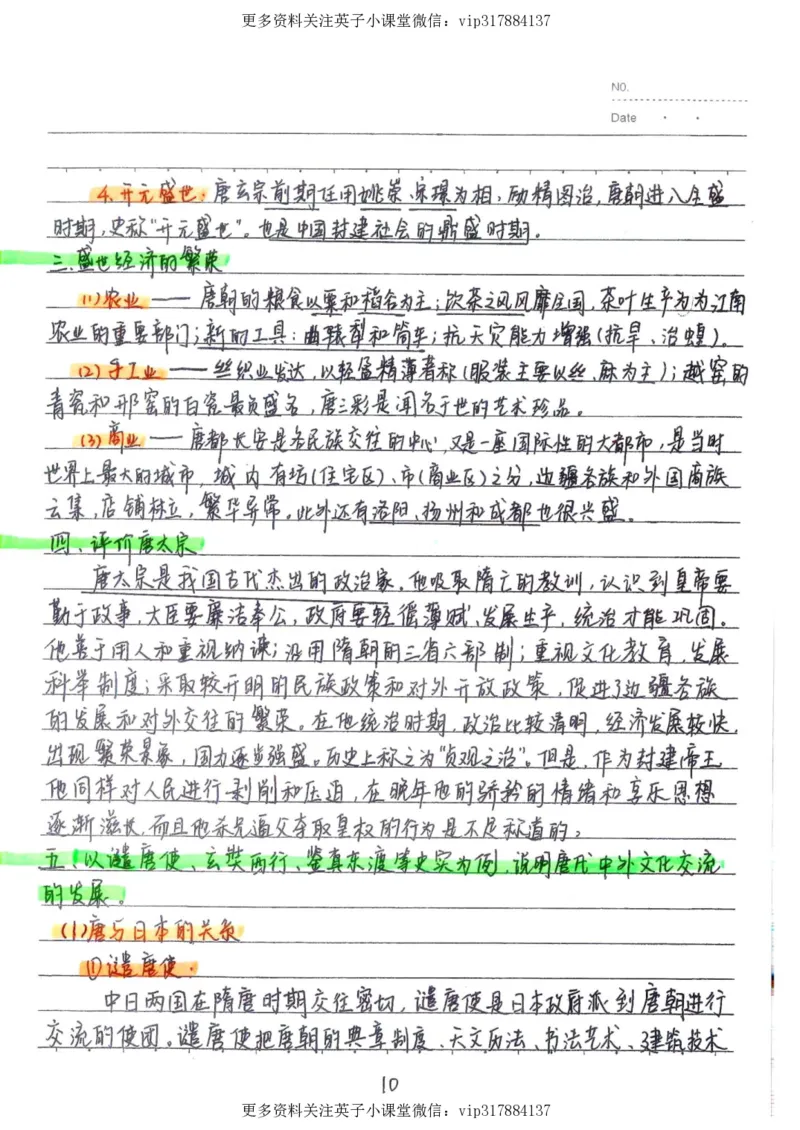 更多资料关注英子小课堂微信：vip317884137
NO.
Date
4.开元盛世：唐玄宗前期任用姚崇、宋璟为相，励精图治，唐朝进入全盛
时期，史称“开元盛世”。也是中国封建社会的鼎盛时期。
三、盛世经济的繁荣
(1)农业 —— 唐朝的粮食以粟和稻谷为主；饮茶之风风靡全国，茶叶生产为为江南
农业的重要部门；新的工具：曲辕犁和筒车；抗天灾能力增强(抗旱、治蝗)。
(2)手工业 —— 丝织业发达，以轻盈精薄著称(服装主要以丝、麻为主)；越窑的
青瓷和邢窑的白瓷最负盛名，唐三彩是闻名于世的艺术珍品。
(3)商业 —— 唐都长安是各民族交往的中心，又是一座国际性的大都市，是当时
世界上最大的城市，城内有坊(住宅区)、市(商业区)之分，边疆各族和外国商族
云集，店铺林立，繁华异常。此外还有洛阳、扬州和成都也很兴盛。
四、评价唐太宗
唐太宗是我国古代杰出的政治家。他吸取隋亡的教训，认识到皇帝要
勤于政事，大臣要廉洁奉公，政府要轻徭薄赋，发展生产，统治才能巩固。
他善于用人和重视纳谏；沿用隋朝的三省六部制；重视文化教育，发展
科举制度；采取较开明的民族政策和对外开放政策，促进了边疆各族
的发展和对外交往的繁荣。在他统治时期，政治比较清明，经济发展较快，
出现繁荣景象，国力逐步强盛。历史上称之为“贞观之治”。但是，作为封建帝王
他同样对人民进行剥削和压迫，在晚年他的骄矜的情绪和享乐思想
逐渐滋长，而且他杀兄逼父夺取皇权的行为是不足称道的。
五、以遣唐使、玄奘西行、鉴真东渡等史实为例，说明唐代中外文化交流
的发展。
(1)唐与日本的关负
①遣唐使：
中日两国在隋唐时期交往密切，遣唐使是日本政府派到唐朝进行
交流的使团。遣唐使把唐朝的典章制度、天文历法、书法艺术、建筑技术
10
更多资料关注英子小课堂微信：vip317884137